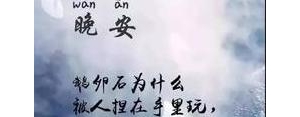 wan an
晚安
鹅卵石为什么
被人捏在手里玩，